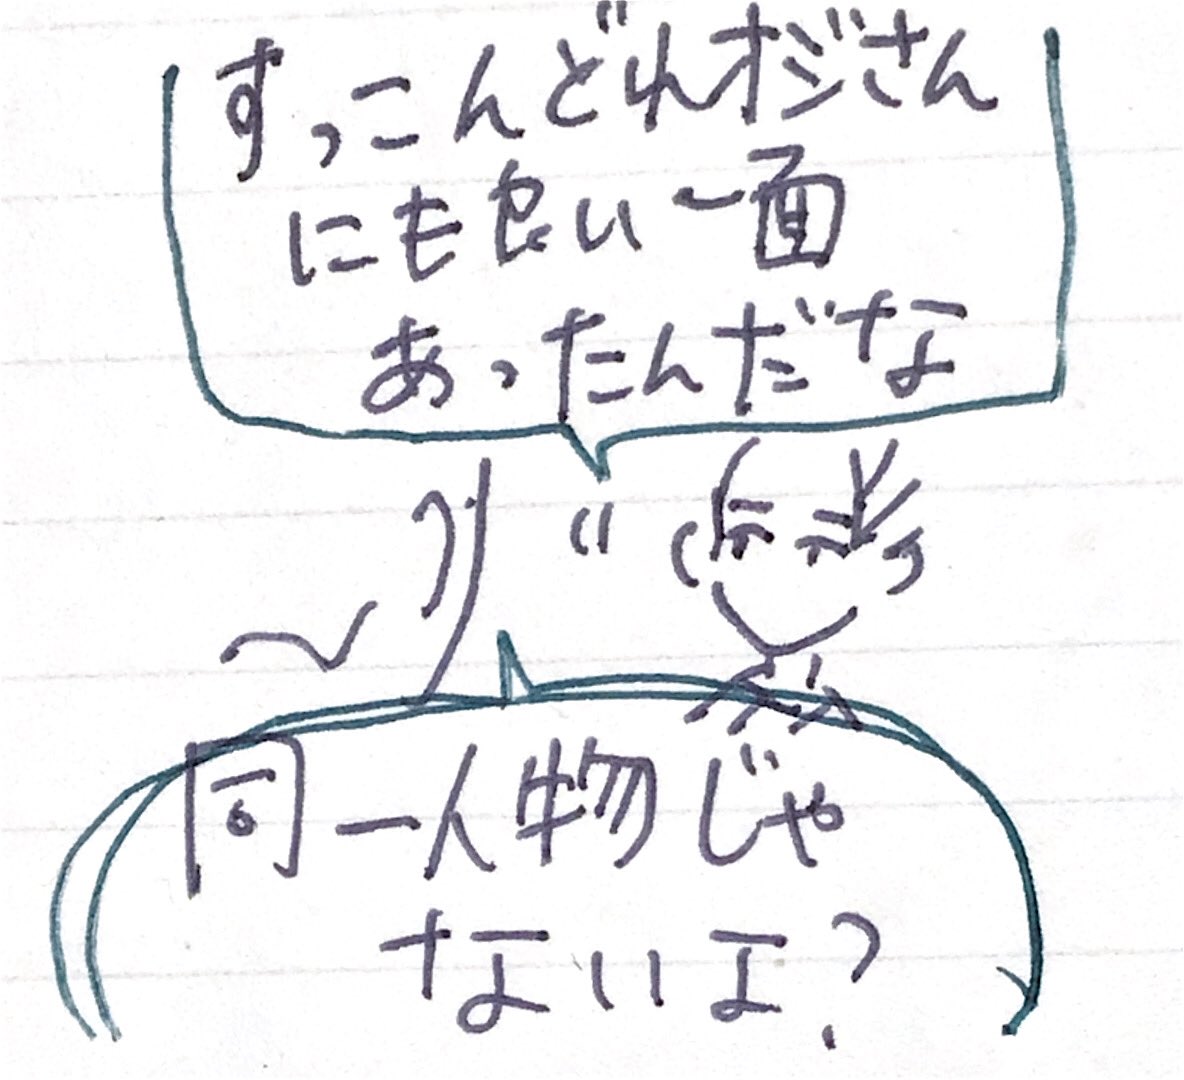 すっこんどれオジさん
にも良い一面
あったんだな
同一人物じゃ
ないよ?